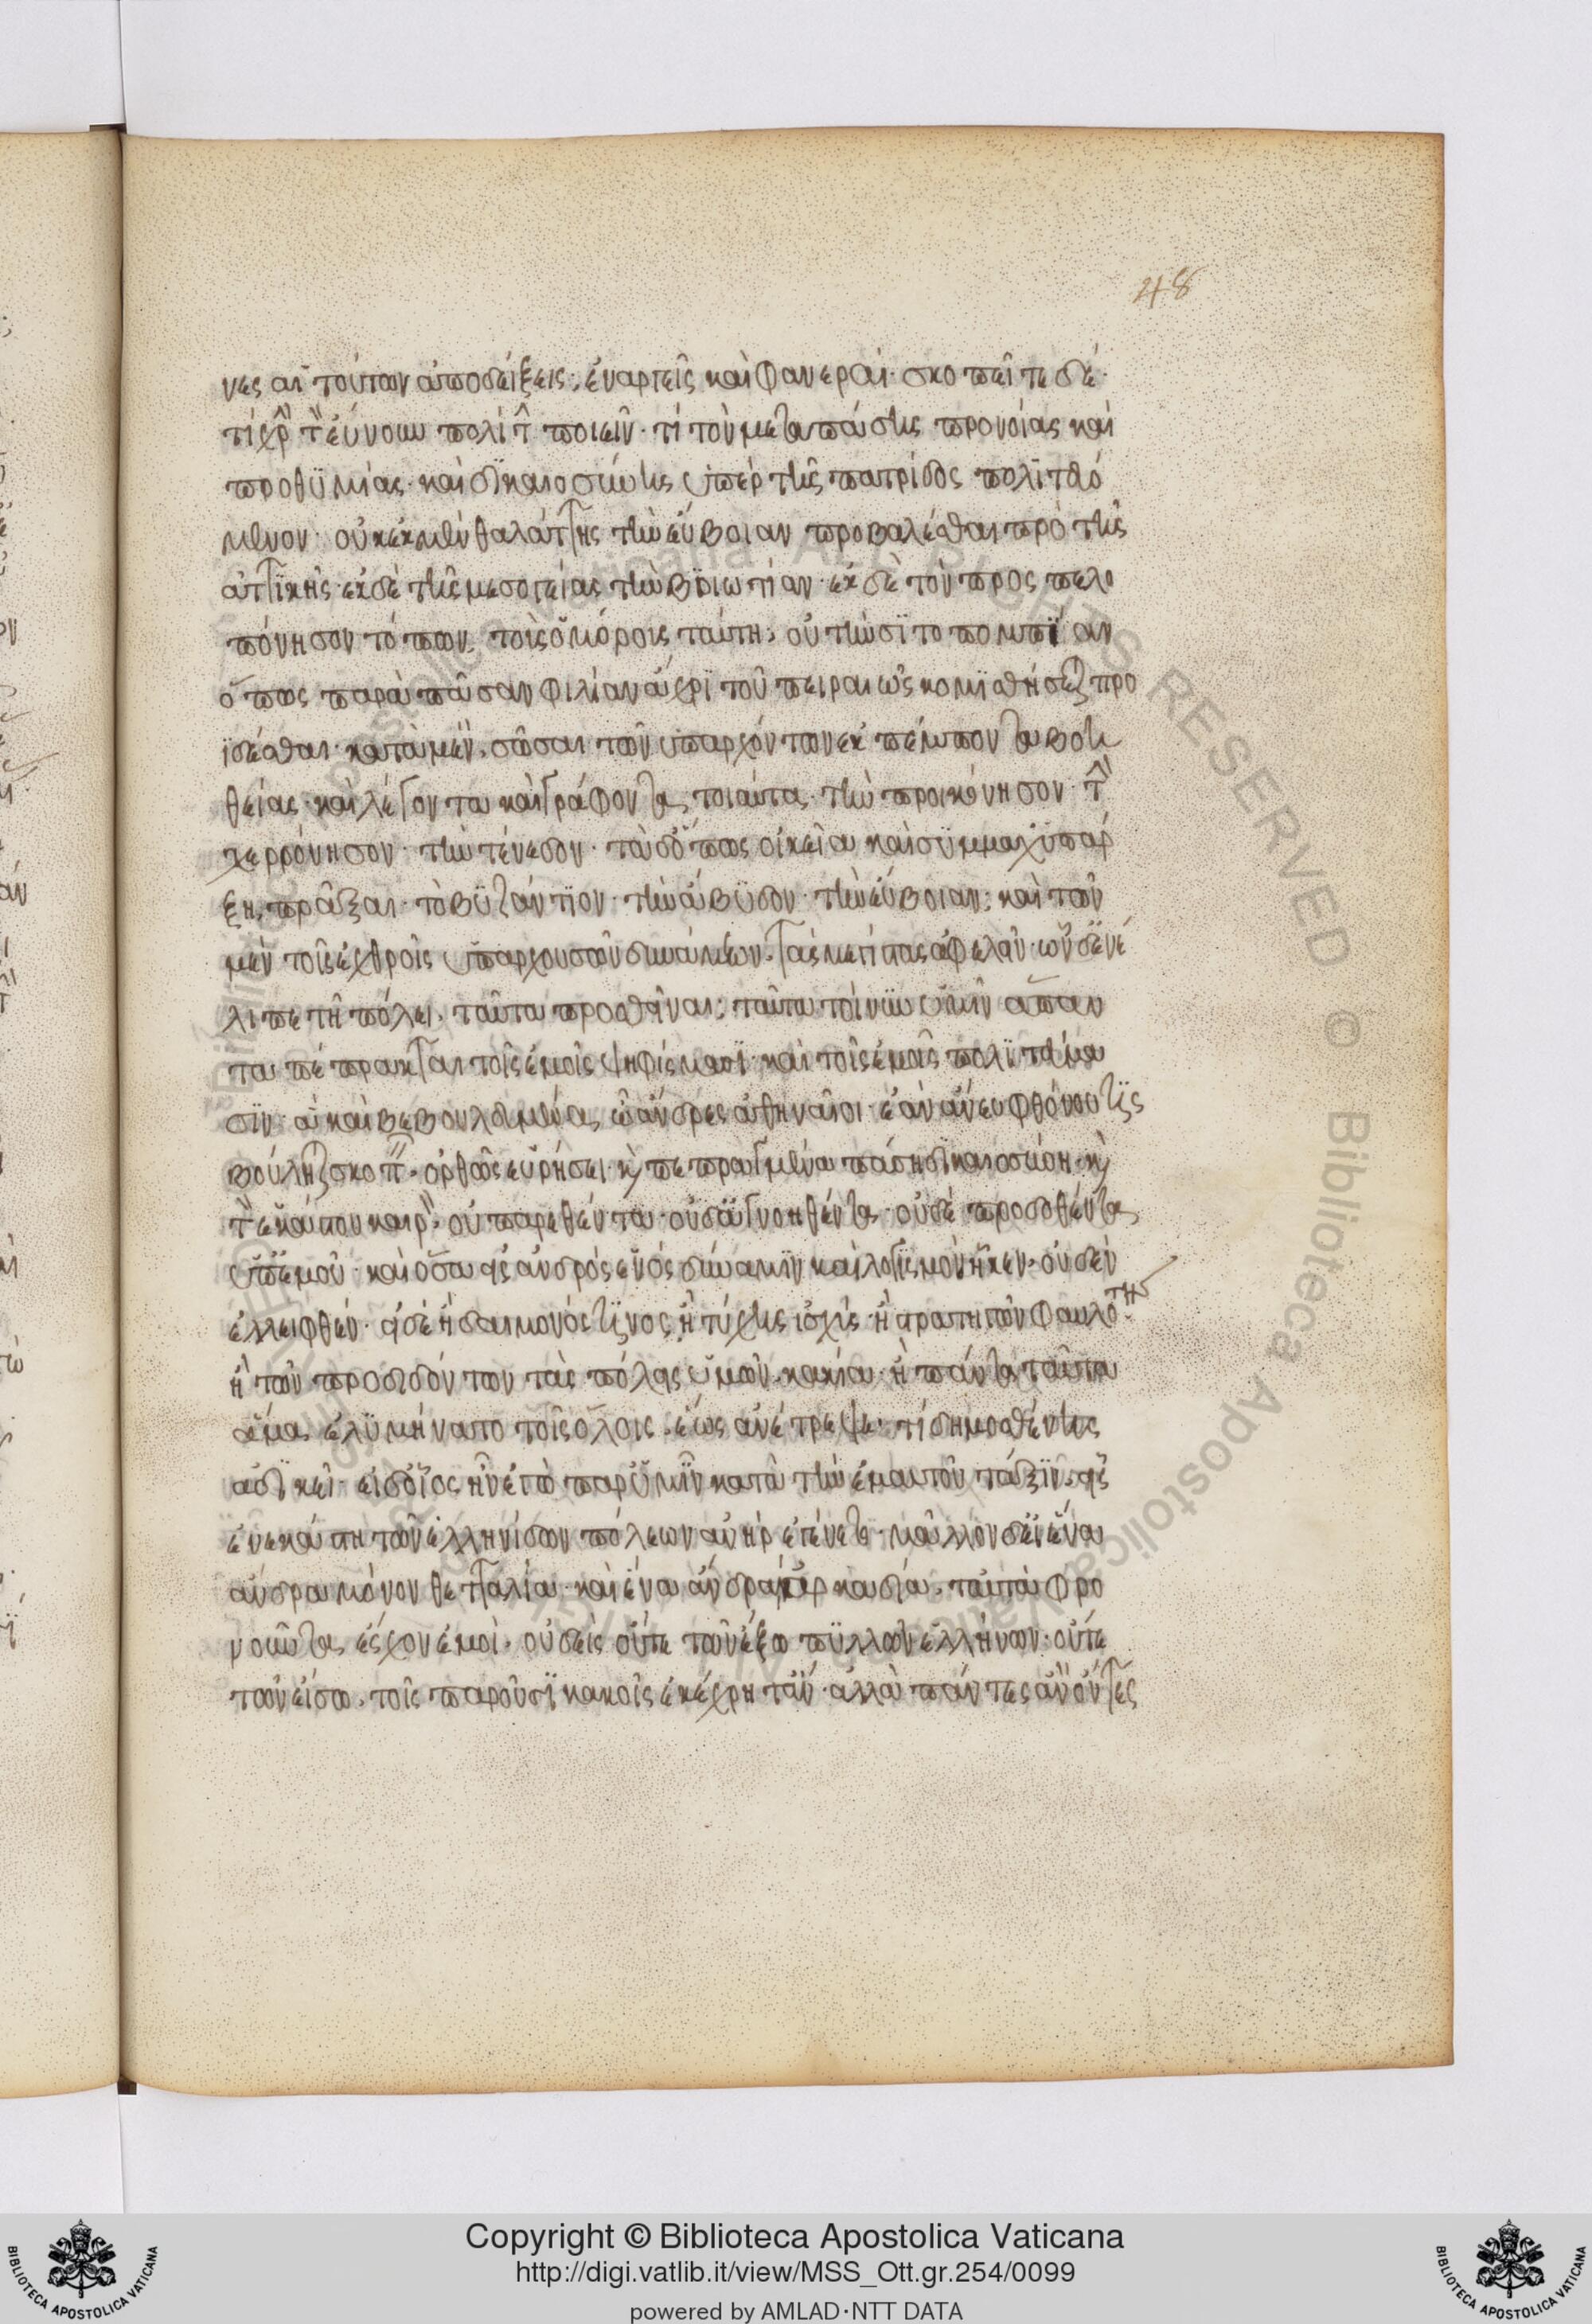 48
νες αἱ τούτων ἀποδείξεις· ἐναργεῖς καὶ φανεραί· σκοπεῖτε δέ·
τί χρῆ τὸν εὔνουν πολίτην ποιεῖν· τί τὸν μετα πάσης προνοίας καὶ
προθυμίας· καὶ δικαιοσύνης ὑπὲρ τῆς πατρίδος πολιτευό
μενον· οὐκ ἐκ μὲν θαλάττης τὴν εὔβοιαν προβαλέσθαι πρὸ τῆς
ἀττικῆς· ἐκ δὲ τῆς μεσογείας τὴν βοιωτίαν· ἐκ δὲ τῶν προς πελο
πόνησον τόπων τοῖς ὁμόροις ταύτη· οὐ τὴν σιτοπομπίαν
ὅπως παρὰ πᾶσαν φιλίαν ἄχρι τοῦ πειραιῶς κομισθήσεται προ
ϊδέσθαι· καὶ τὰ μὲν· σῶσαι τῶν ὑπαρχόντων ἐκπέμποντα βοη
θείας· καὶ λέγοντα καὶ γράφοντα τοιαῦτα· τὴν προικόνησον· τὴν
χερρόνησον· τὴν τένεδον· τὰ δ' ὅπως οἰκεῖα καὶ σύμμαχ ὑπάρ
ξη, πρᾶξαι· τὸ βυζάντιον· τὴν ἄβυδον· τὴν εὔβοιαν· καὶ τῶν
μὲν τοῖς ἐχθροῖς ὑπαρχουσῶν δυνάμεων· τὰς μεγίστας ἀφελεῖν· ὧν δ' ἐνέ
λιπε τῇ πόλει· ταῦτα προσθεῖναι· ταῦτα τοίνυν ὑμῖν ἅπαν
τα πέπρακται τοῖς ἐμοῖς ψηφίσμασι· καὶ τοῖς ἐμοῖς πολιτεύμα
σιν· ἃ καὶ βεβουλευμένα, ὦ ἄνδρες ἀθηναῖοι· ἐὰν ἄνευ φθόνου τις
βούληται σκοπεῖν· ὀρθῶς εὑρήσει· καὶ πεπραγμένα πάσῃ δικαιοσύνη· καὶ
τὸν ἑκάστου καιρὸν· οὐ παρεθέντα· οὐδ' ἀγνοηθέντα· οὐδὲ προδοθέντα
ὑπ' ἐμοῦ· καὶ ὅσα εἰς ἀνδρὸς ἑνὸς δύναμιν καὶ λογισμὸν ἧκεν· οὐδὲν
ἐλλειφθέν· εἰ δὲ ἢ δαιμονός τινος ἢ τύχης ἰσχὺς· ἢ στρατηγῶν φαυλότης
ἢ τῶν προδιδόντων τὰς πόλεις ὑμῶν· κακία· ἢ πάντα ταῦτα
ἅμα ἐλυμήνατο τοῖς ὅλοις· ἕως ἀνέτρεψε· τί δημοσθένης
ἀδικεῖ· εἰ δ' οἷος ἦν ἐγὼ παρ' ὑμῖν κατὰ τὴν ἐμαυτοῦ τάξιν· εἷς
ἐν ἑκάστη τῶν ἑλληνίδων πόλεων ἀνὴρ ἐγένετο· μᾶλλον δ' εἰ ἕνα
ἄνδρα μόνον θετταλία· καὶ ἕνα ἄνδρα ἀρκαδία· ταὐτὰ φρο
νοῦντα ἔσχον ἐμοί· οὐδεὶς οὔτε τῶν ἔξω πυλλῶν ἑλλήνων· οὔτε
τῶν εἴσω· τοῖς παροῦσι κακοῖς ἐκέχρητ' ἄν· ἀλλὰ πάντες ἂν ὄντες
Copyright © Biblioteca Apostolica Vaticana
http://digi.vatlib.it/view/MSS_Ott.gr.254/0099
powered by AMLAD·NTT DATA